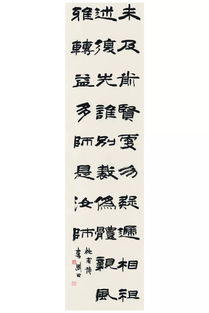 未及前賢更勿疑遞相祖
述復先誰別裁偽體親風
雅轉益多師是汝師
杜甫詩